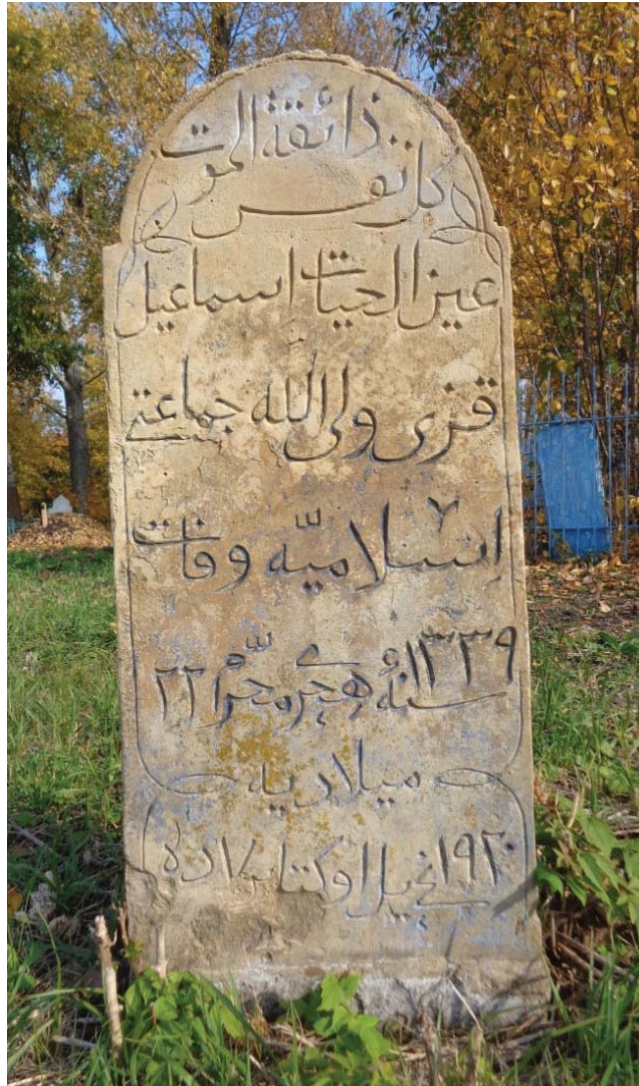 كل نفس ذائقة الموت
عين الحيات اسماعيل
قزى ولى الله جماعتى
إسلاميّه وفات
١٣٣٩ سنهٔ هجرى محرّم ٢٢
ميلاديه
١٩٢٠ نچى يل اوكتابر ٧ ده